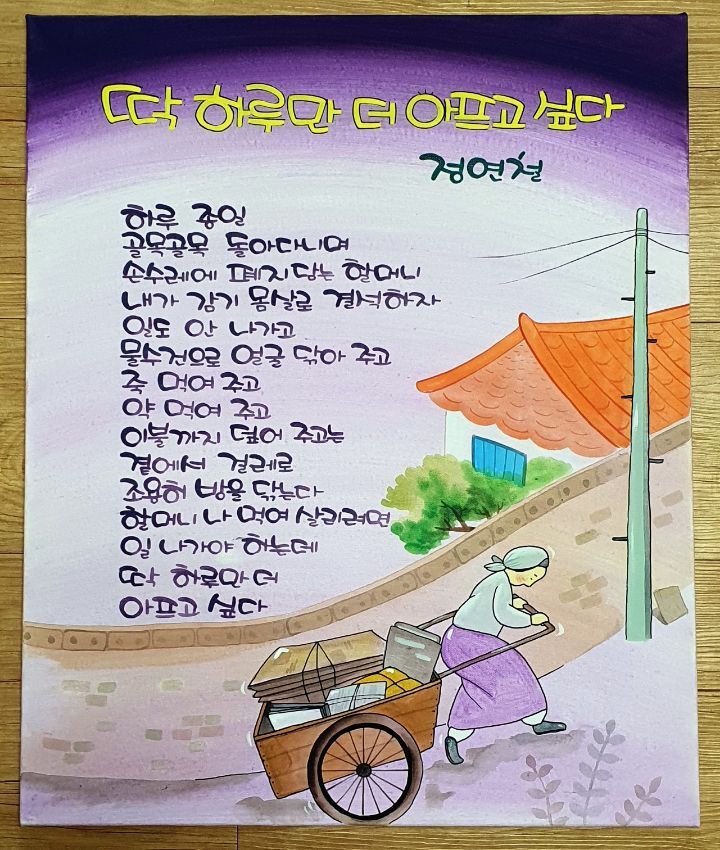 딱 하루만 더 아프고 싶다
정연철
하루 종일
골목골목 돌아다니며
손수레에 폐지 담는 할머니
내가 감기 몸살로 결석하자
일도 안 나가고
물수건으로 얼굴 닦아 주고
죽 먹여 주고
약 먹여 주고
이불까지 덮어 주고는
곁에서 걸레로
조용히 방을 닦는다
할머니 나 먹여 살리려면
일 나가야 하는데
딱 하루만 더
아프고 싶다